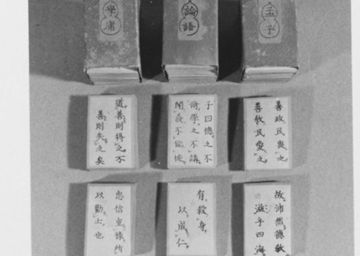 學庸
論語
孟子
道善則得之不
善則失之矣
子曰德之不
脩學之不講
聞義不能徙
善政民畏之
善教民愛之
忠信重祿所
以勸士也
有殺身
以成仁
故沛然德教
溢乎四海